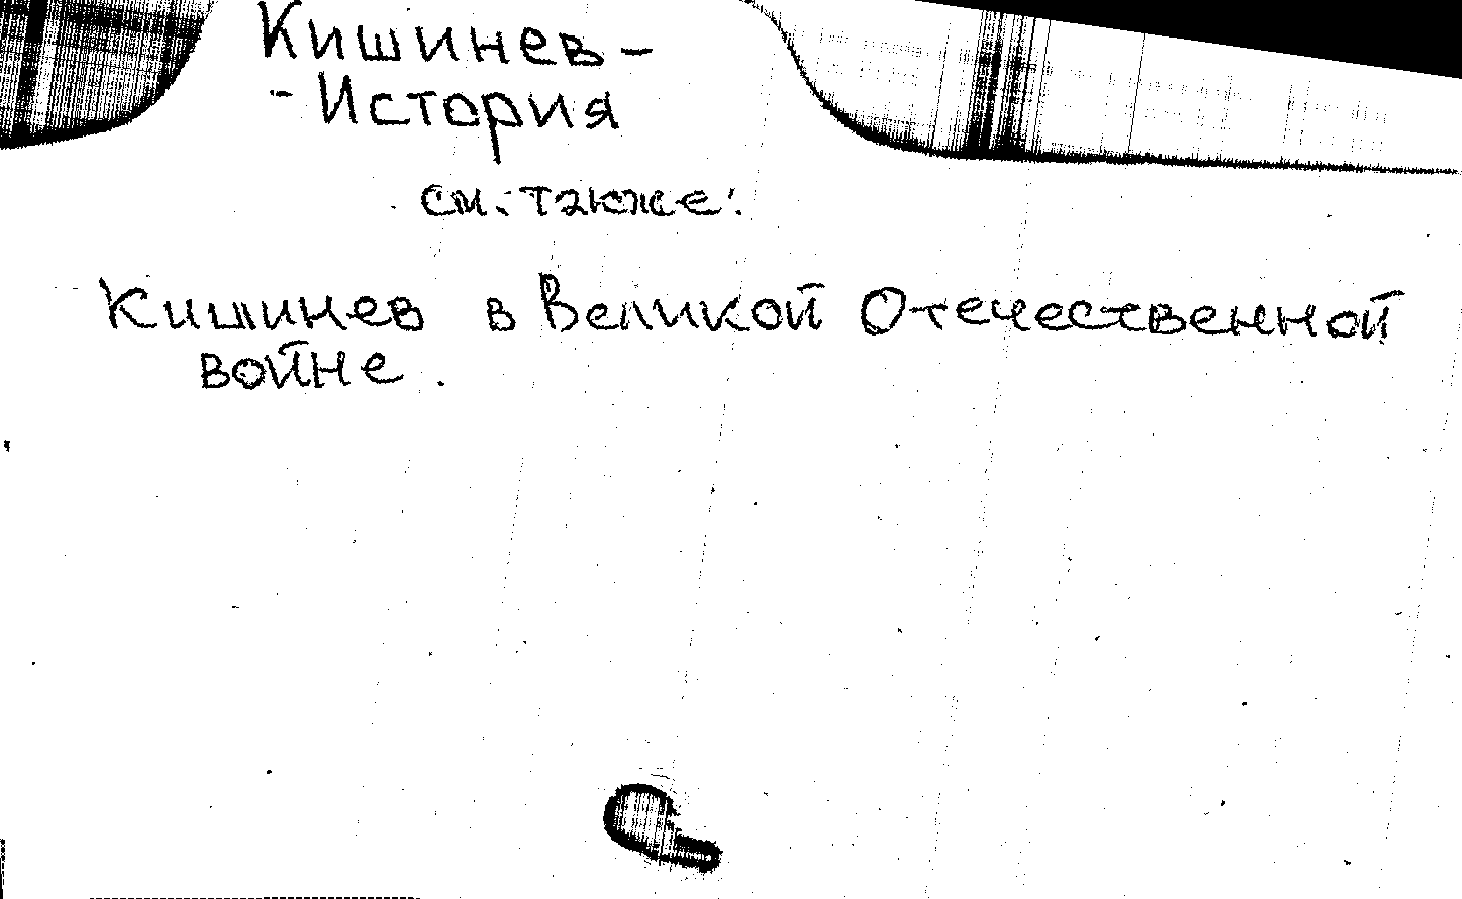 Кишинев -
- История
см. также:
Кишинев в Великой Отечественной
войне.